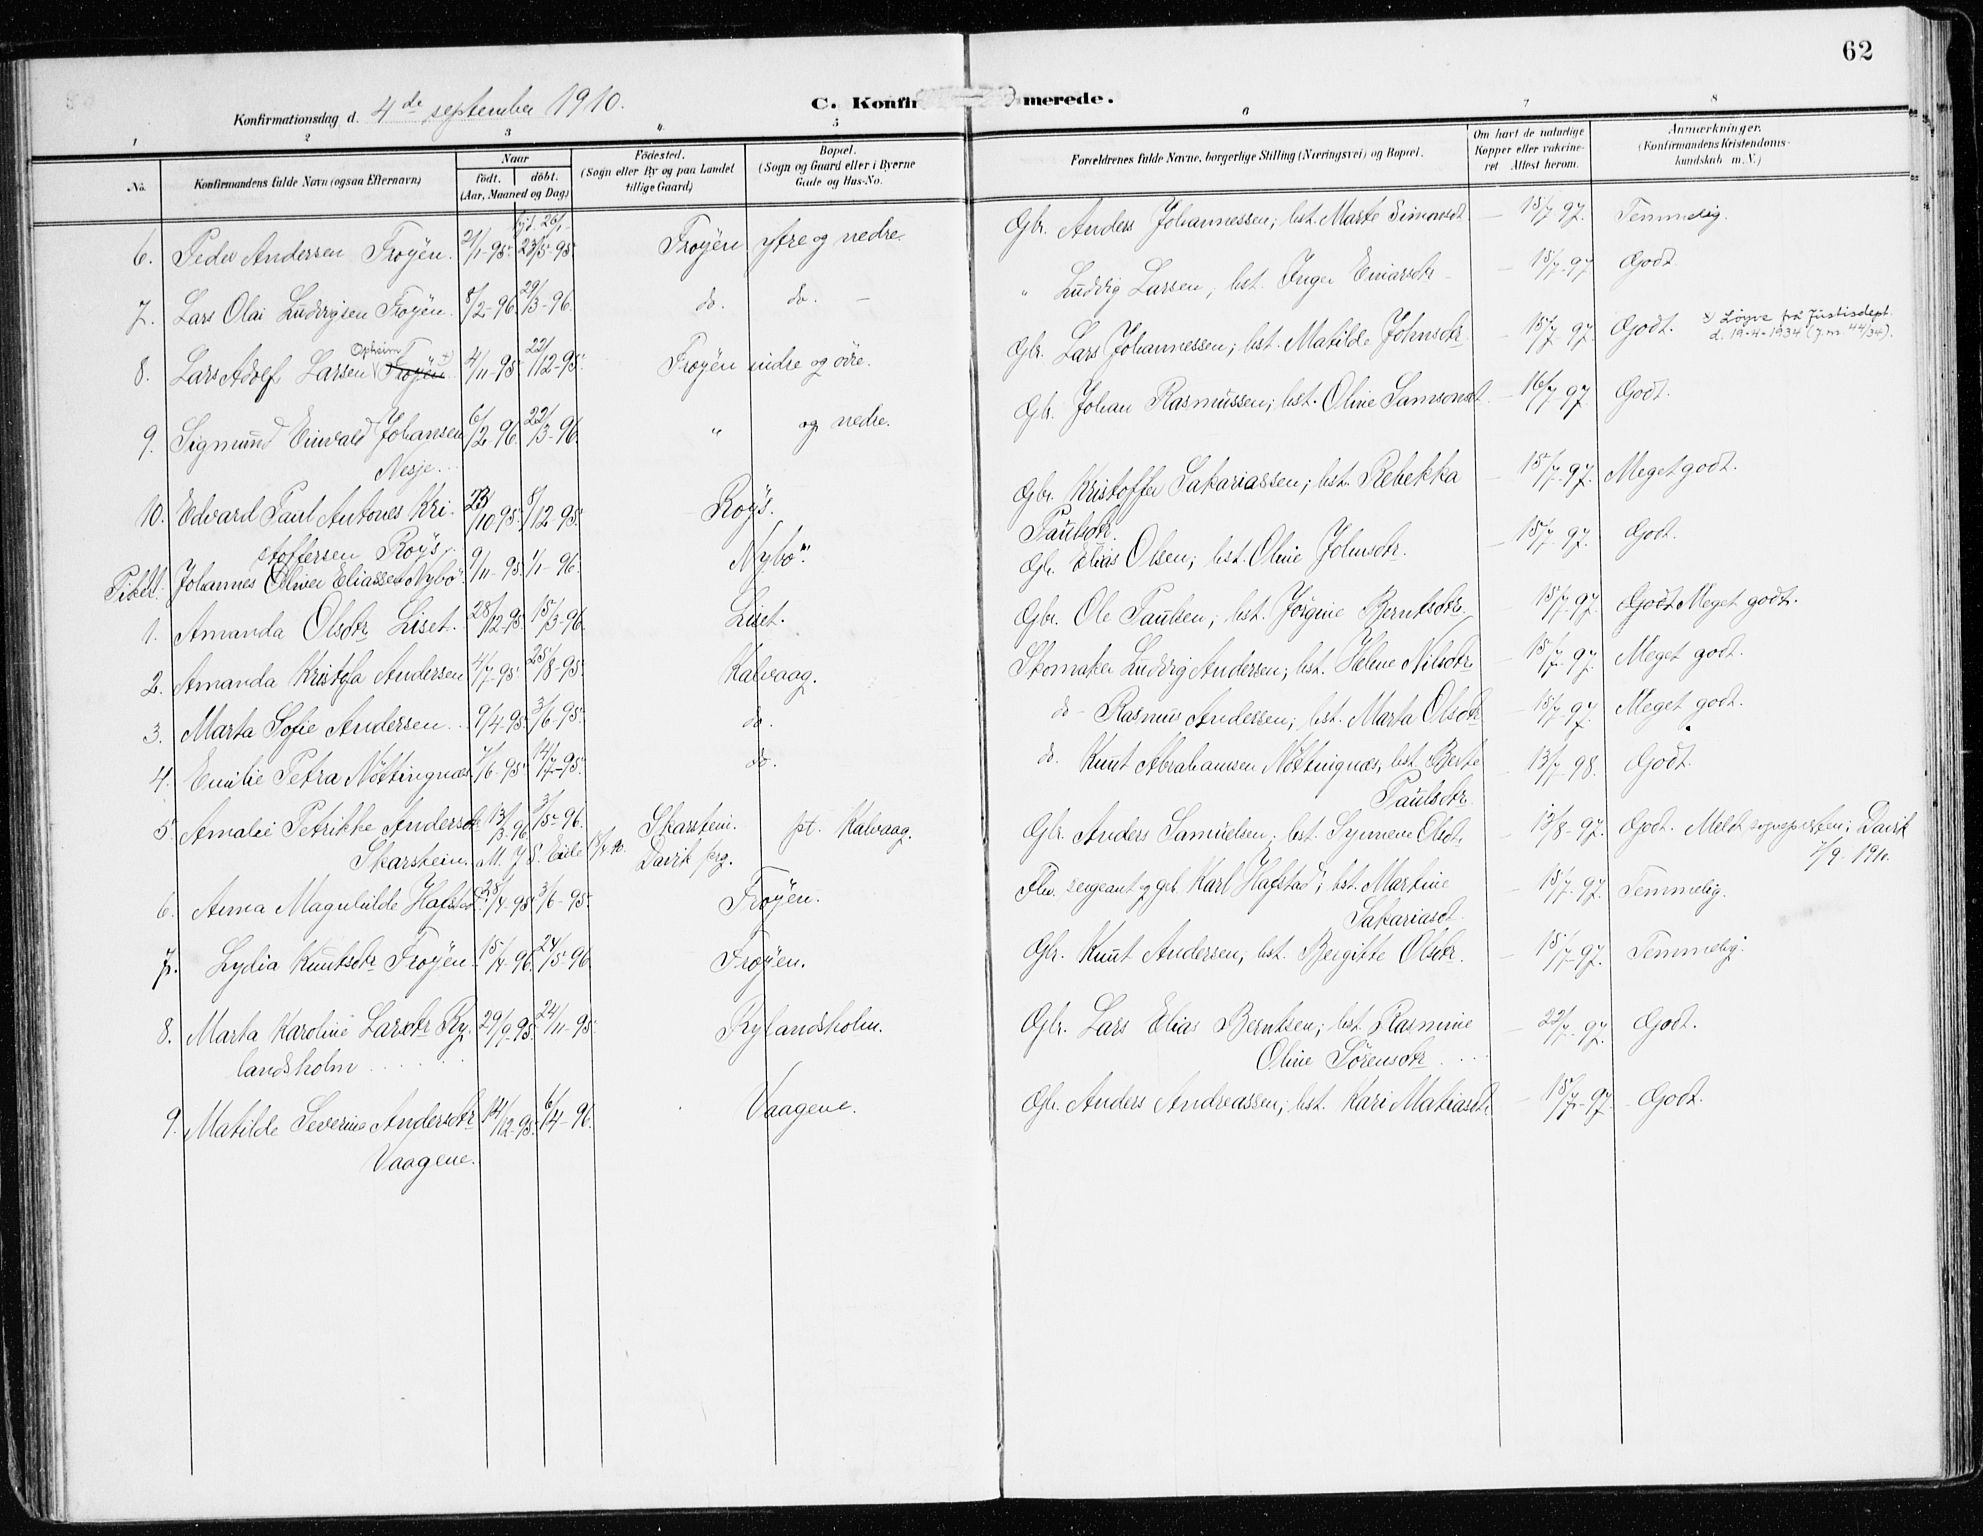 62
Konfirmationsdag d. 4de september 1910.
C. Konfirmerede.
1 2 3 4 5 6 7 8
No.
Konfirmandens fulde Navn (ogsaa Efternavn)
Naar
født. døbt.
(Aar, Maaned og Dag)
Fødested.
(Sogn eller By og paa Landet tillige Gaard)
Bopæl.
(Sogn og Gaard eller i Byerne Gade og Hus-No.
Forældrenes fulde Navne, borgerlige Stilling (Næringsvei) og Bopæl.
Om havt de naturlige Kopper eller vakcineret Attest herom.
Anmærkninger.
(Konfirmandens Kristendomskundskab m. V.)
6. Peder Andersen Frøyen. 21/1-95. hjd. 26/1- 23/5-95. Frøyen ytre og nedre. Gbr. Anders Johannessen; hst. Marte Simonsdt. — 15/7 97. Temmelig.
7. Lars Olai Ludvigsen Frøyen. 8/2-96 29/3-96. do. do. — " Ludvig Larsen, hst. Inger Einarsdtr — 15/7-97 Godt.
8. Lars Adolf Larsen Opheim Frøyen x) 4/11-95 22/12-95. Frøyen indre og øvre. Gbr. Lars Johannessen; hst. Matilde Johnsdtr. — 15/7 97. Godt. x) Løyve frå Justisdept. d. 19-4-1934 (j.nr. 44/34).
9. Sigmund Einvald Johansen 6/2-96. 22/3-96. " og nedre. Gbr. Johan Rasmussen; hst. Oline Samsonsdt. — 16/7 97. Godt.
Nesje.
10. Edvard Paul Antones Kri- 23/10 95. 8/12-95. Røys. Gbr. Kristoffer Sakariassen; hst. Rebekka — 15/7-97. Meget godt.
stoffersen Røys. Paulsdtr.
Johannes Oliver Eliassen Nybø 9/11-95. 1/1-96. Nybø. Gbr. Elias Olsen; hst. Oline Johnsdtr. — 15/7-97. Godt.
1. Amanda Olsdtr Liset. 28/12-95 15/3-96. Liset. Gbr. Ole Paulsen; hst. Jørgine Berntsdtr. — 15/7-97. Godt Meget godt.
2. Amanda Kristofa Andersen 4/7-95. 25/8-95. Kalvaag. Skomaker Ludvig Andersen; hst. Helene Nilsdtr. — 15/7-97. Meget godt.
3. Marta Sofie Andersen. 9/4-95. 3/6-95. do. do — Rasmus Andersen; hst. Marta Olsdtr — 15/7-97. Meget godt.
4. Emilie Petra Nøttingnæs 7/6-95. 14/7-95. do. do. Knut Abrahamsen Nøttingnæs, hst. Berte — 13/7-98. Godt.
Paulsdtr.
5. Amalie Petrikke Andersdtr 13/3-96 3/5-96. Skarstein. pt. Kalvaag. Gbr. Anders Samuelsen; hst. Synneve Olsdt. — 13/8-97. Godt. Meldt sognepresten i Davik
Skarstein. M. J. S. Eide Davik prg. 7/9-1910.
6. Anna Magnhilde Hafstad 28/4-95 3/6-95. Frøyen. Fhv. sergeant og gbr. Karl Hafstad; hst. Martine — 15/7-97. Temmelig.
Sakariasdt.
7. Lydia Knutsdtr Frøyen 15/4-96. 24/5-96 Frøyen. Gbr. Knut Andersen; hst. Bergitte Olsdtr. — 15/7-97. Temmelig.
8. Marta Karoline Larsdtr Ry- 29/9-95. 24/11-95. Rylandsholm. Gbr. Lars Elias Berntsen; hst. Rasmine — 22/7-97. Godt.
landsholm Oline Sørensdtr
9. Matilde Severine Andersdtr 14/12-95. 6/4-96. Vaagene. Gbr. Anders Andreassen; hst. Kari Matiasdt. — 15/7-97. Godt.
Vaagene.